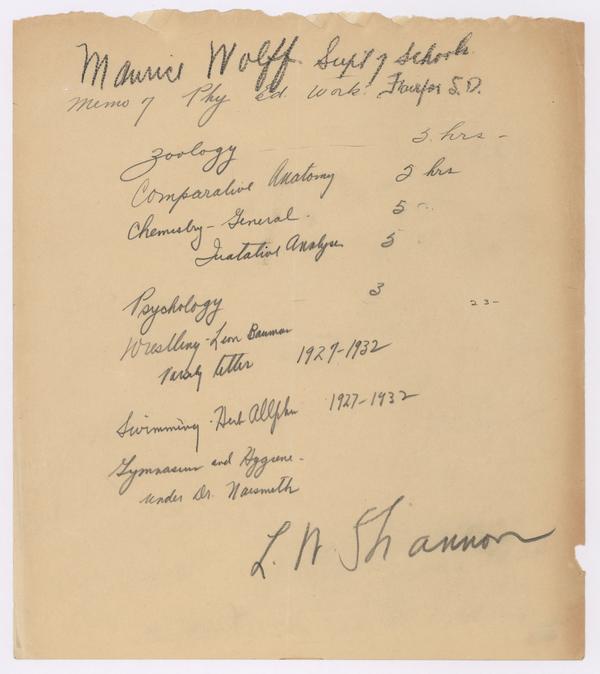 Maurice Wolff Supt of Schools
memo of Phy Ed. Work. Fairfax S.D.
Zoology 5 hrs -
Comparative Anatomy 5 hrs
Chemistry - General. 5 -
Analysis 5
Psychology 3
23-
Wrestling - Leon Bauman
Varsity letter 1927-1932
Swimming - Herb Allphin 1927-1932
Gymnasium and Hygiene -
under Dr. Naismith
L. W. Shannon